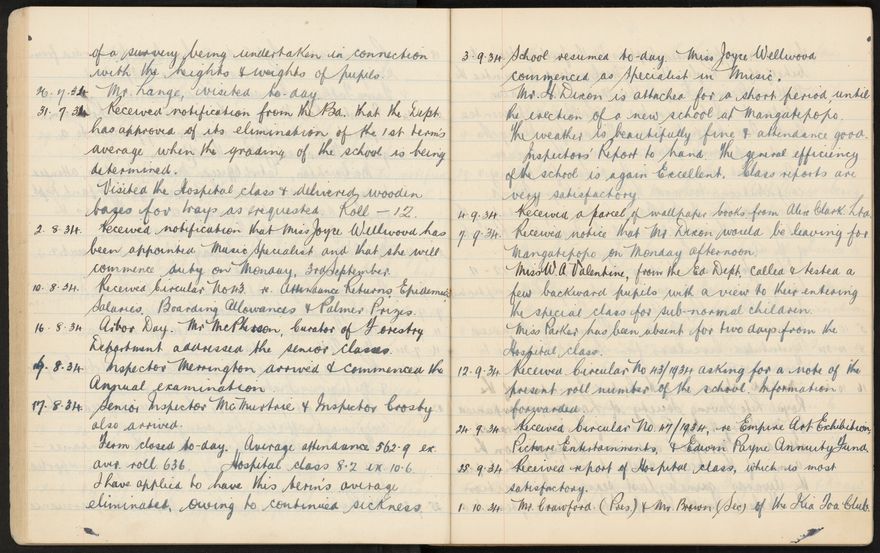 of a survery being undertaken in connection
with the heights & weights of pupils.
26.7.34 Mr. Lange, visited to-day
31.7.34 Received notification from the Bd. that the Dept.
has approved of its elimination of the 1st term's
average when the grading of the school is being
determined.
Visited the Hospital class & delivered wooden
bases for trays as requested Roll - 12.
2.8.34. Received notification that Miss Joyce Wellwood has
been appointed Music Specialist and that she will
commence duty on Monday, 3rd September.
10.8.34. Received Circular No 43. re. Attendance Returns, Epidemics,
Salaries, Boarding Allowances & Palmer Prizes.
16.8.34 Arbor Day. Mr McPherson, Curator of Forestry
Department addressed the senior classes.
8.34. Inspector Merrington arrived & commenced the
Annual examination
17.8.34. Senior Inspector McMurtrie & Inspector Crosby
also arrived.
Term closed to-day. Average attendance 562.9 ex
avr. roll 636 Hospital class 8.2 ex 10.6
I have applied to have this term's average
eliminated, owing to continued sickness
3.9.34. School resumed to-day. Miss Joyce Wellwood
commenced as Specialist in Music.
Mr. H. Dixon is attached for a short period, until
the erection of a new school at Mangatepopo.
The weather is beautifully fine & attendance good.
Inspectors' Report to hand. The general efficiency
of the school is again Excellent. Class reports are
very satisfactory
4.9.34. Received a parcel of wallpaper books from Alex Clark. Ltd.
7.9.34. Received notice that Mr. Dixon would be leaving for
Mangatepopo on Monday afternoon.
Miss W. A. Valentine, from the Ed. Dept, called & tested a
few backward pupils with a view to their entering
the special class for sub-normal children.
Miss Parker has been absent for two days from the
Hospital class.
12.9.34 Received Circular No 43/1934 asking for a note of the
present roll number of the school. Information
forwarded
24.9.34 Received Circular No. 47/1934, re Empire Art Exhibition,
Picture Entertainments, & Edwin Payne Annuity Fund.
25.9.34 Received report of Hospital class, which is most
satisfactory.
1.10.34. Mr. Crawford (Pres) & Mr. Brown (Sec) of the Kia Toa Club.